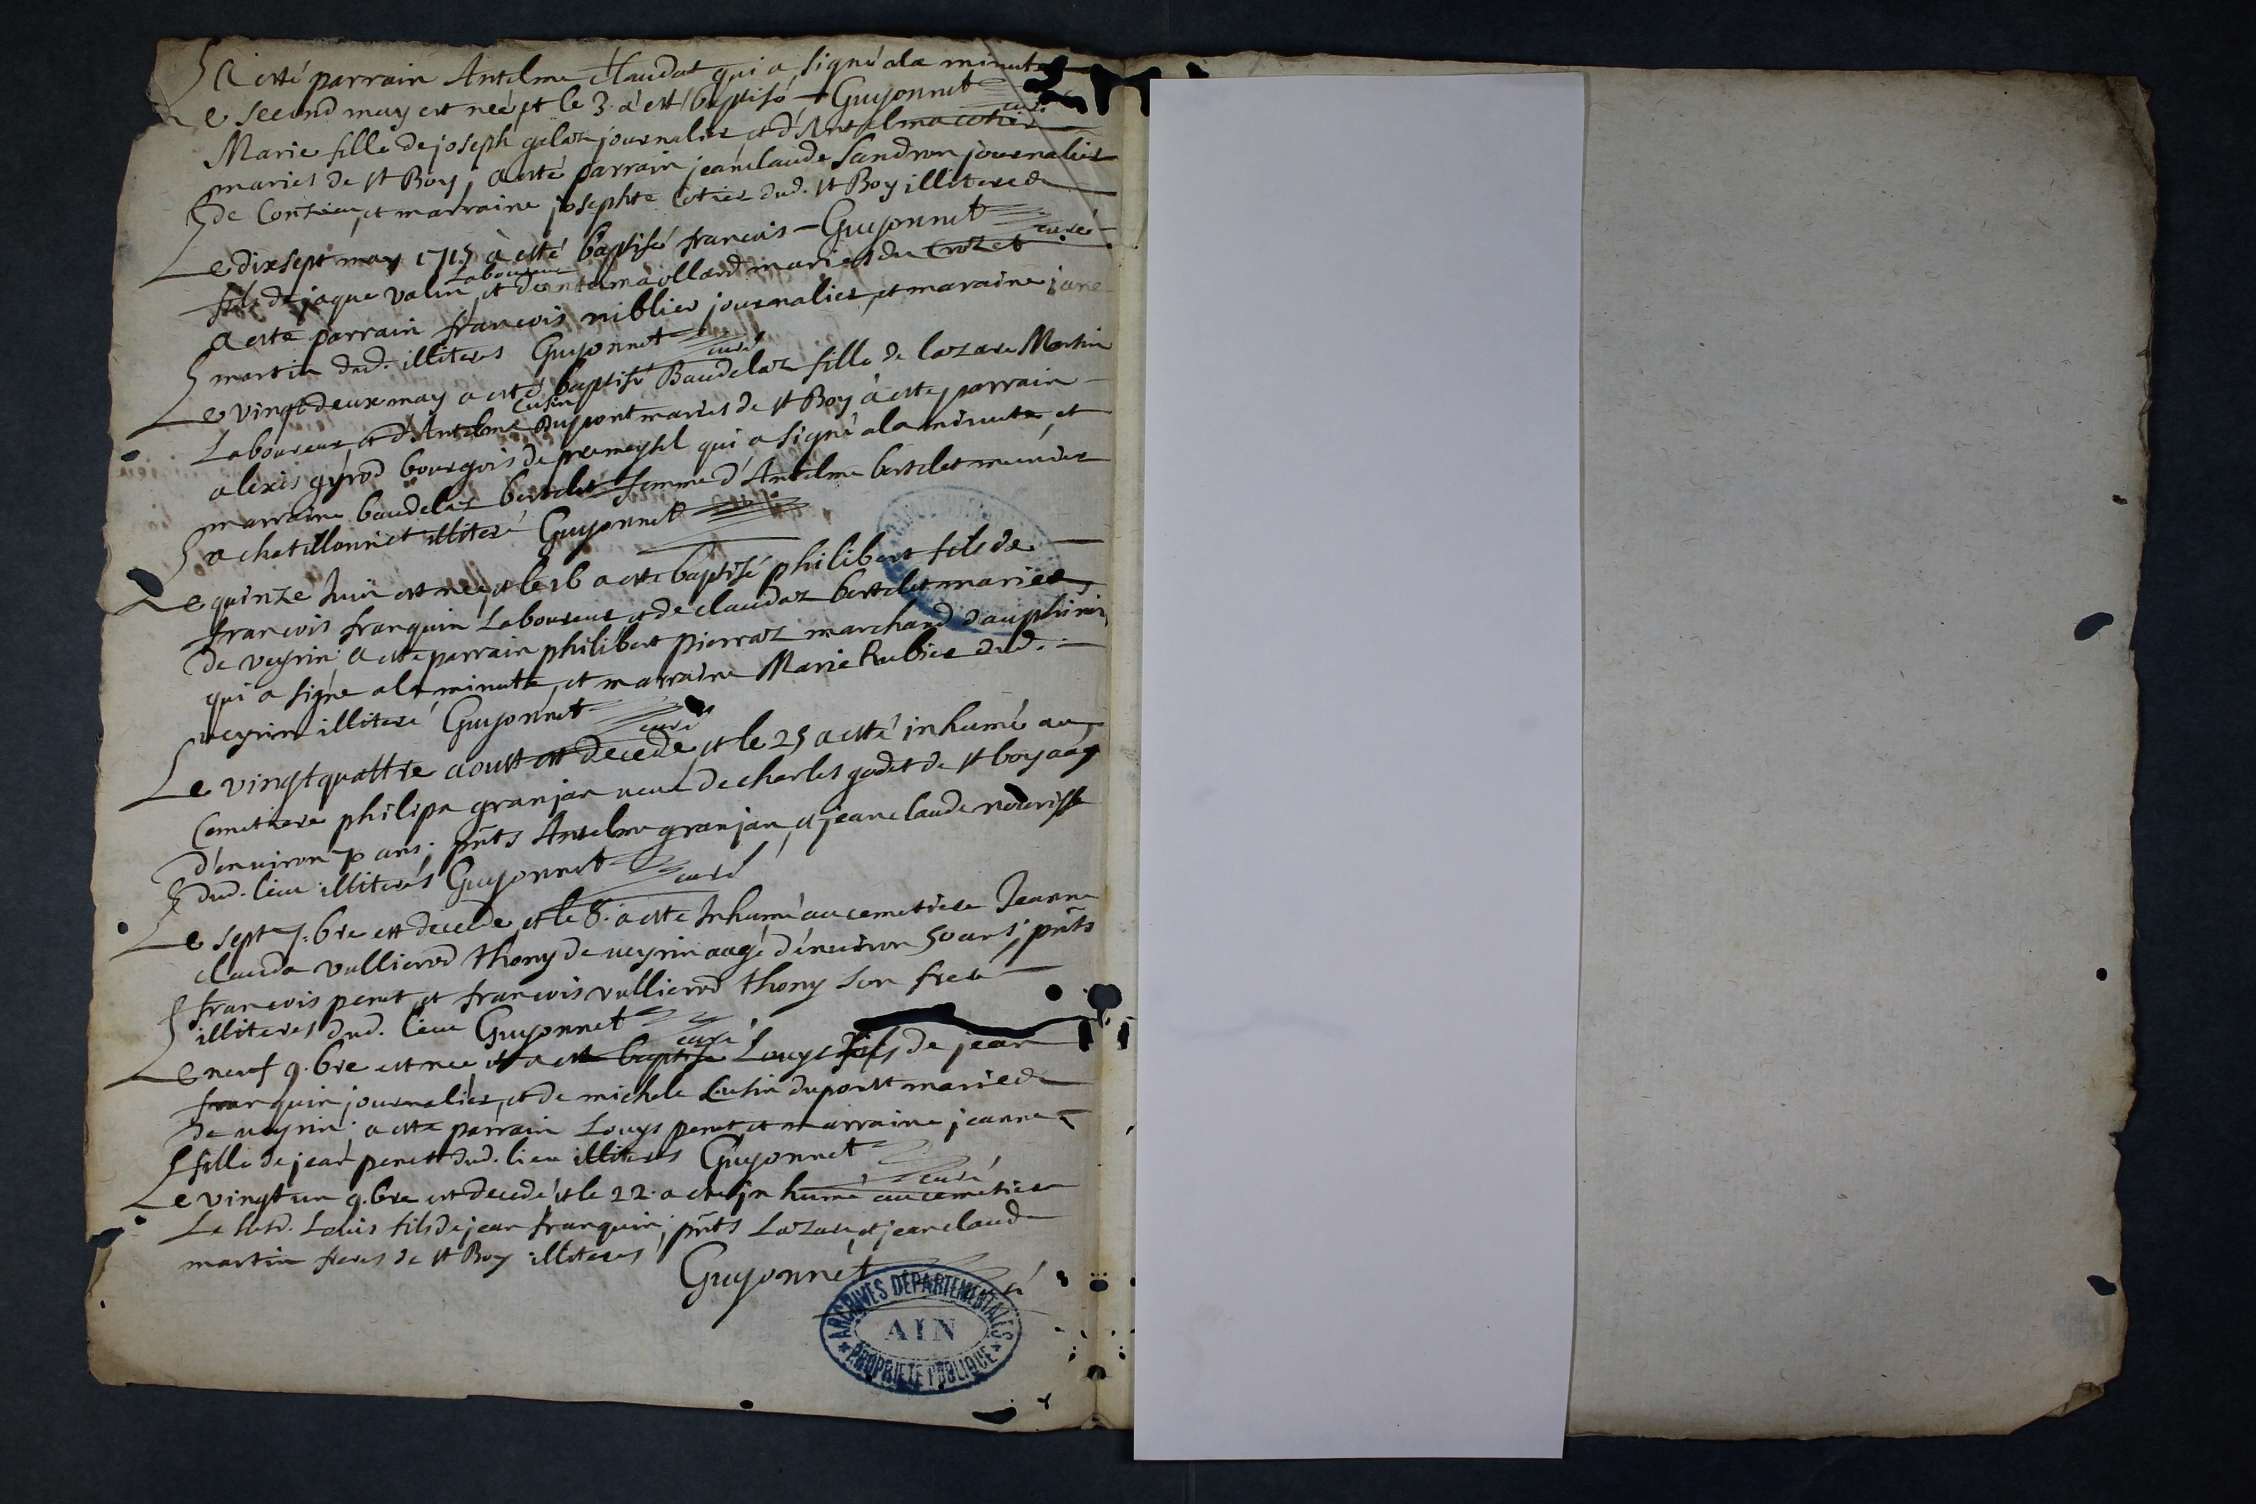 A esté parrain Antelme Claudat qui a signé a la minute
Le second may est neé et le 3. a est baptisé — Guyonnet curé
Marie fille de joseph galat journalier et d'Antelma cotier
mariés de st Boy, a esté parrain jean claude Sandron journalier
de Conzieu, et marraine josephte Cotier dud. st Boy illiteréds
Le dixsept may 1715 à esté baptisé francois — Guyonnet curé
fils de jaque valin Laboureur et d'antelma ollard mariés du Crozet
a este parrain francois niblier journalier, et maraine jane
martin dud. illiteres Guyonnet curé
Le vingt deux may a esté baptisé Baudelaz fille de lazare Martin
Laboureur, et d'Antelme Cusin Dupont mariés de st Boy à este parrain
alexis gyrod bourgois de premeysel qui a signé a la minute, et
marraine baudelaz bertelet femme d'Antelme bertelet meunier
a chatillonnet illiteré Guyonnet
Le quinze Juin est neé, et le 16 a este baptisé philibert fils de
francois franquin Laboureur et de claudaz bertelet mariés
de veyrin; a este parrain philibert pierraz marchand dauphinois
qui a signe a la minute, et marraine Marie Rubier dud.
veyrin illiteré Guyonnet curé
Le vingt quattre aoust est decedé, et le 25 a esté inhumé au
Cemetiere philipa granjan veuve de charles godet de st boy aagé
d'environ 70 ans; pnts Antelme granjan, et jean claude nourisse
dud. lieu illiterés Guyonnet curé
Le sept 7.bre est decede, et le 8. a este Inhumé au cemetiere Jeanne
clauda vullierod thony de veyrin aagé d'environ 50 ans; pnts
francois penet, et francois vullierod thony son frere
illiteres dud. lieu Guyonnet curé
Le neuf 9.bre est nee, et a est baptisé Louys fils de jean
franquin journalier, et de michele Cusin dupont mariéds
de veyrin; a este parrain Louys penet, et marraine jeanne
fille de jean penet dud. lieu illiteres Guyonnet curé
Le vingt un 9.bre est decedé et le 22. a este jn humé au cemetiere
Le susd. Louis fils de jean franquin; pnts Lazare, et jean claude
martin freres de st Boy illiteres
Guyonnet curé
ARCHIVES DÉPARTEMENTALES
AIN
PROPRIÉTÉ PUBLIQUE